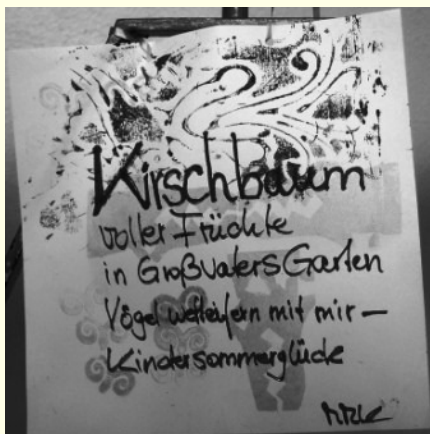 Kirschbaum
voller Früchte
in Großvaters Garten
Vögel wetteifern mit mir –
Kindersommerglück